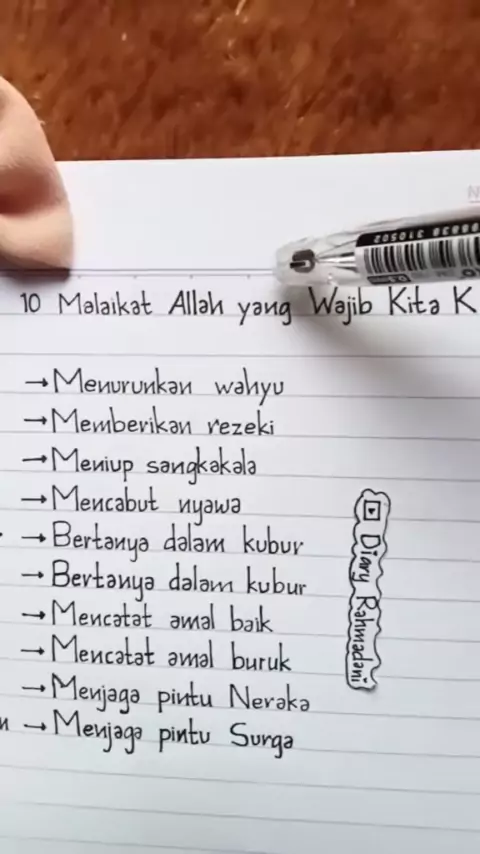 10 Malaikat Allah yang Wajib Kita K
→ Menurunkan wahyu
→ Memberikan rezeki
→ Meniup sangkakala
→ Mencabut nyawa
→ Bertanya dalam kubur
→ Bertanya dalam kubur
→ Mencatat amal baik
→ Mencatat amal buruk
→ Menjaga pintu Neraka
n → Menjaga pintu Surga
Diary Rahmadani
310502